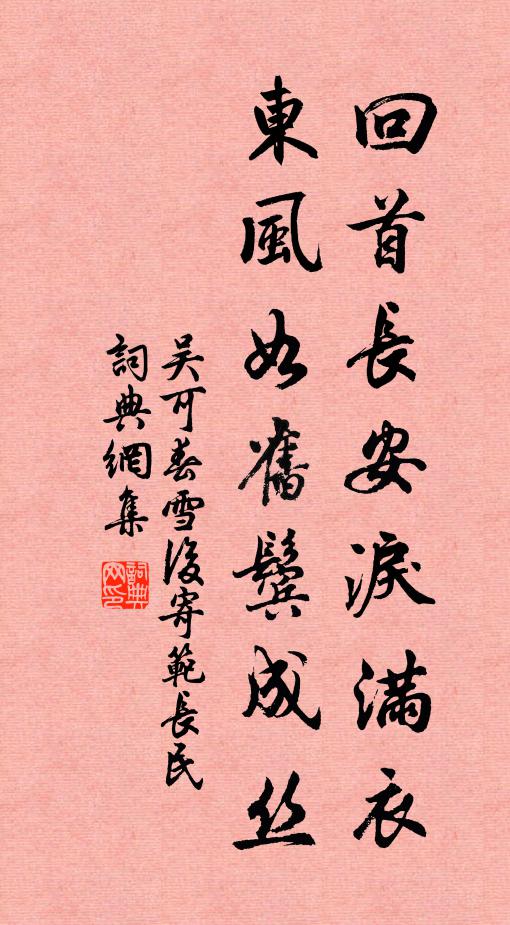 回首長安淚滿衣
東風如舊鬢成丝
吴可春雪後寄範長民
詞典網集
詞典网印